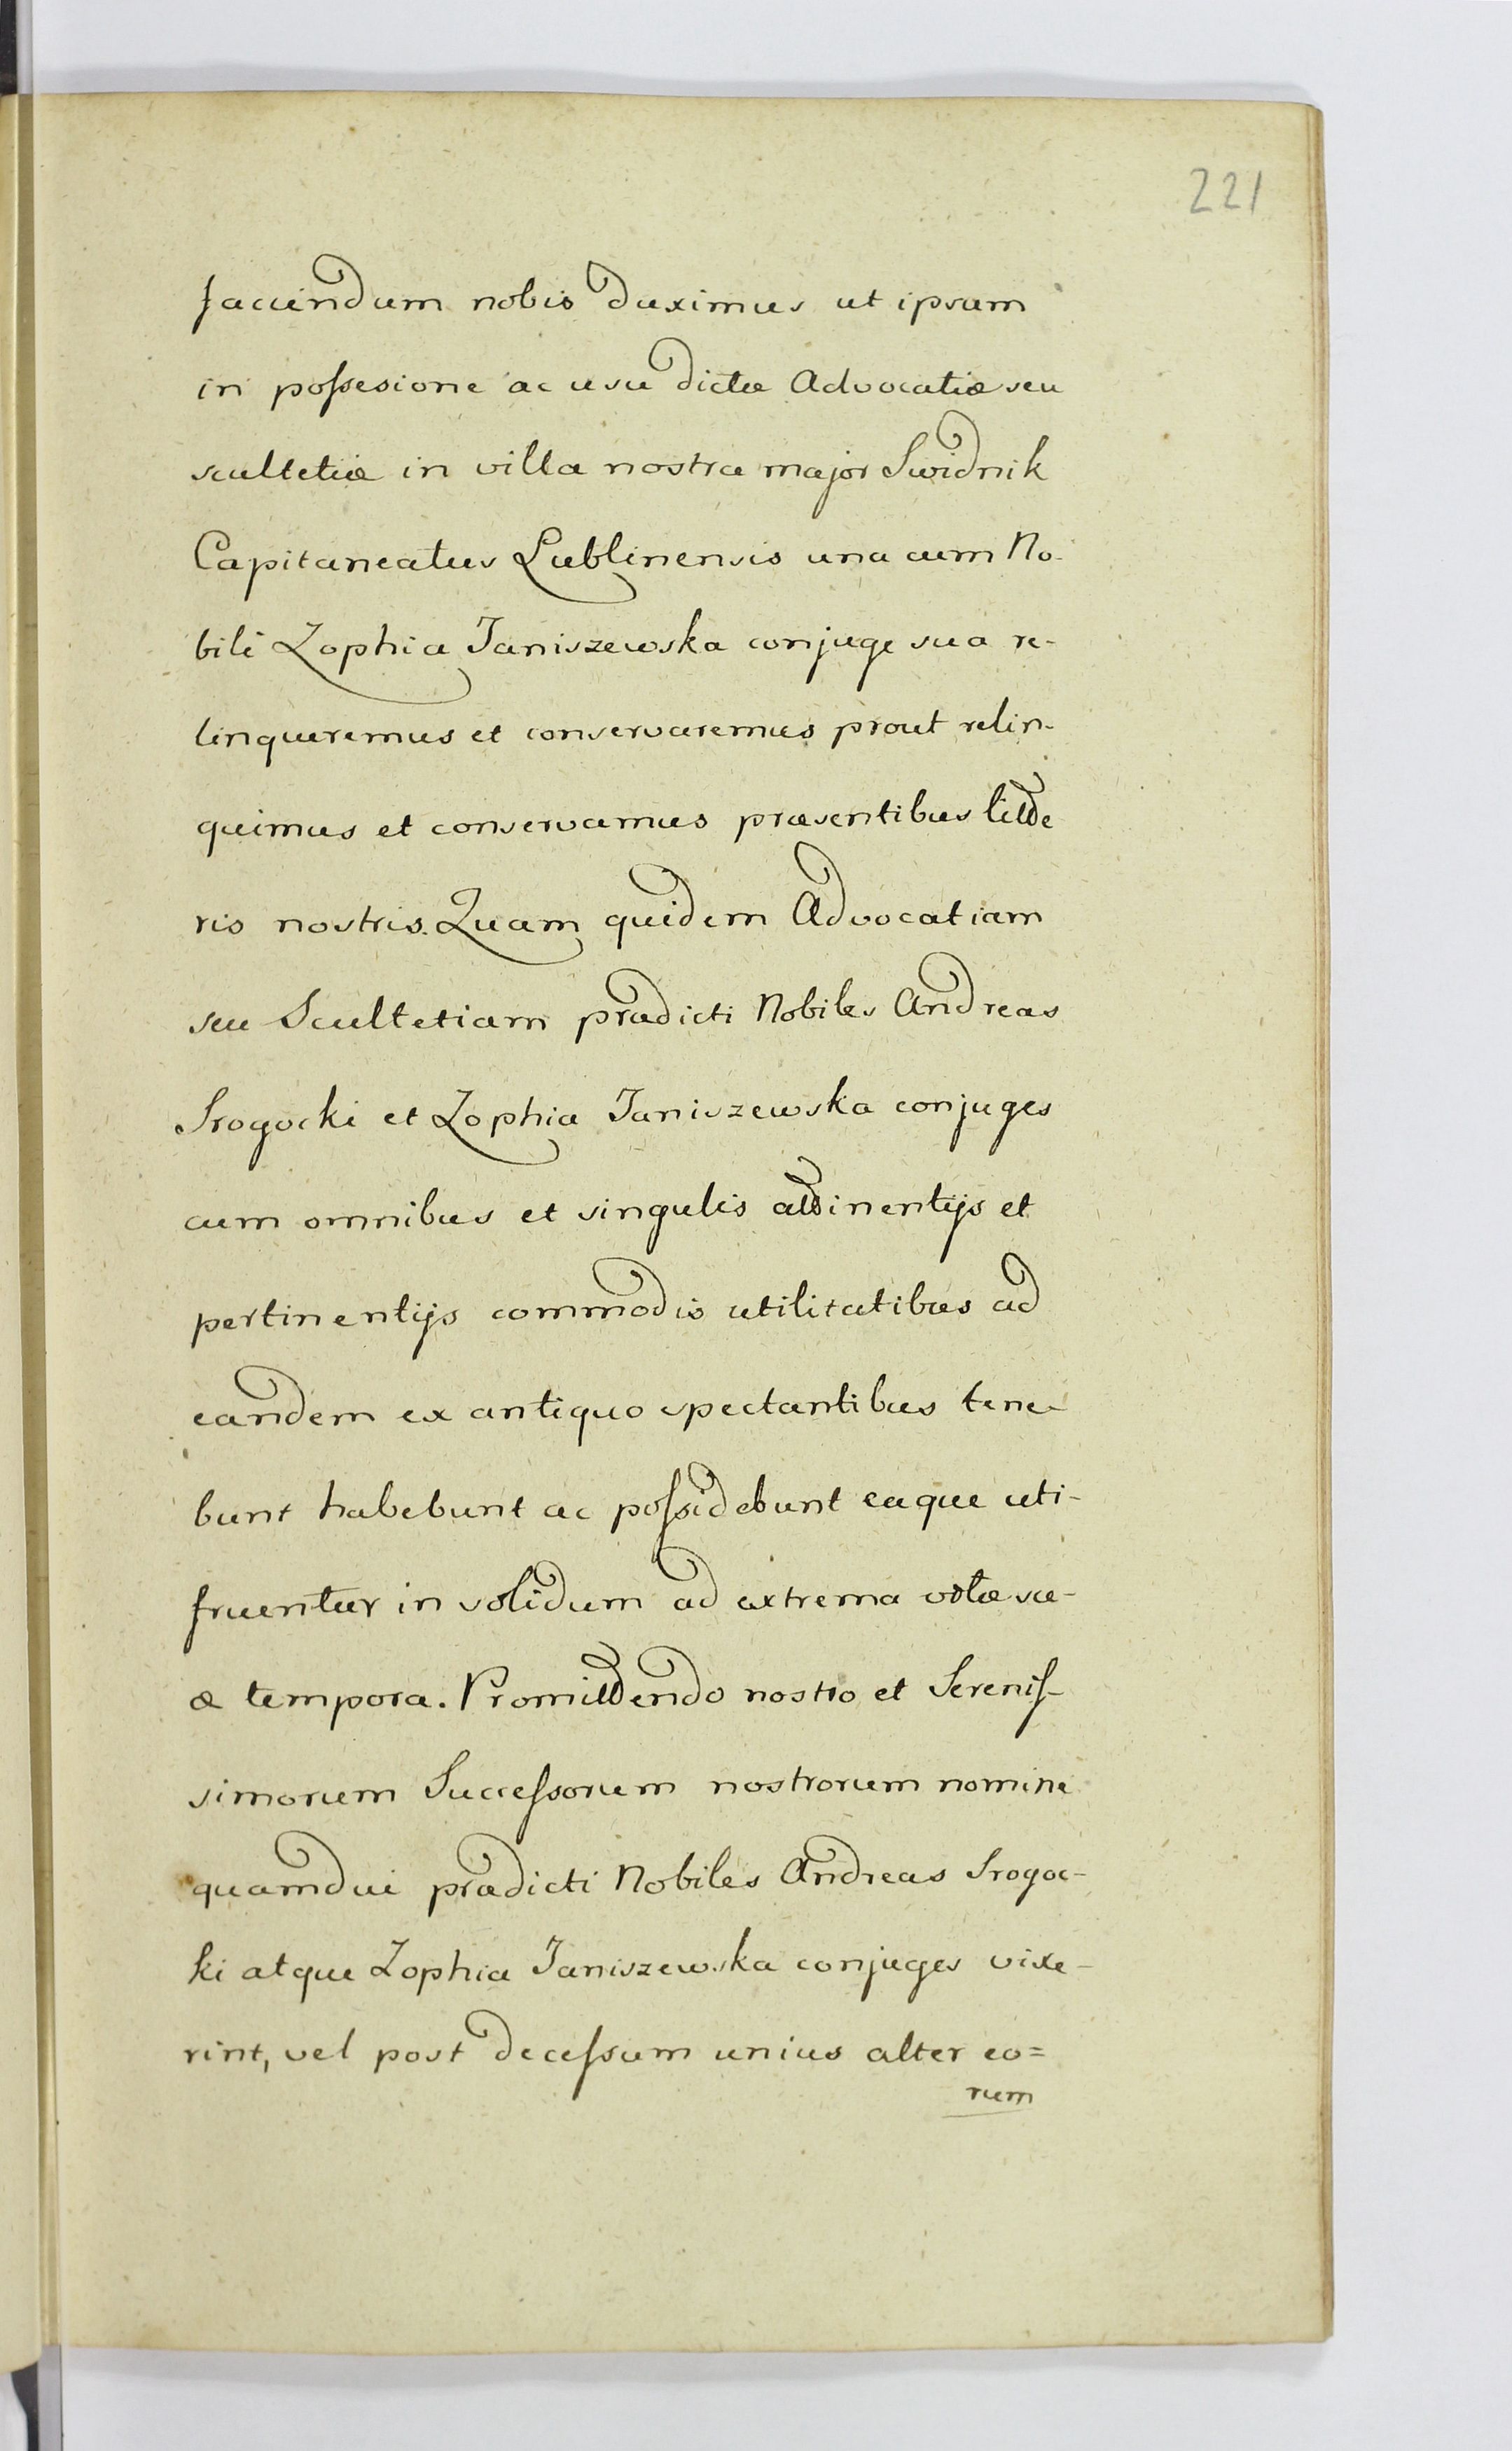 221
faciendum nobis duximus ut ipsum
in possesione ac usu dictæ Advocatiæ seu
scultetiæ in villa nostra major Swidnik
Capitaneatus Lublinensis una cum No-
bili Zophia Janiszewska conjuge sua re-
linqueremus et conservaremus prout relin-
quimus et conservamus præsentibus litte
ris nostris. Quam quidem Advocatiam
seu Scultetiam prædicti Nobiles Andreas
Srogocki et Zophia Janiszewska conjuges
cum omnibus et singulis attinentijs et
pertinentijs commodis utilitatibus ad
eandem ex antiquo spectantibus tene-
bunt habebunt ac possidebunt eaque uti-
fruentur in solidum ad extrema vitæ su-
æ tempora. Promittendo nostro et Serenis-
simorum Successorum nostrorum nomine
quamdui prædicti Nobiles Andreas Srogoc-
ki atque Zophia Janiszewska conjuges vixe-
rint, vel post decessum unius alter eo=
rum